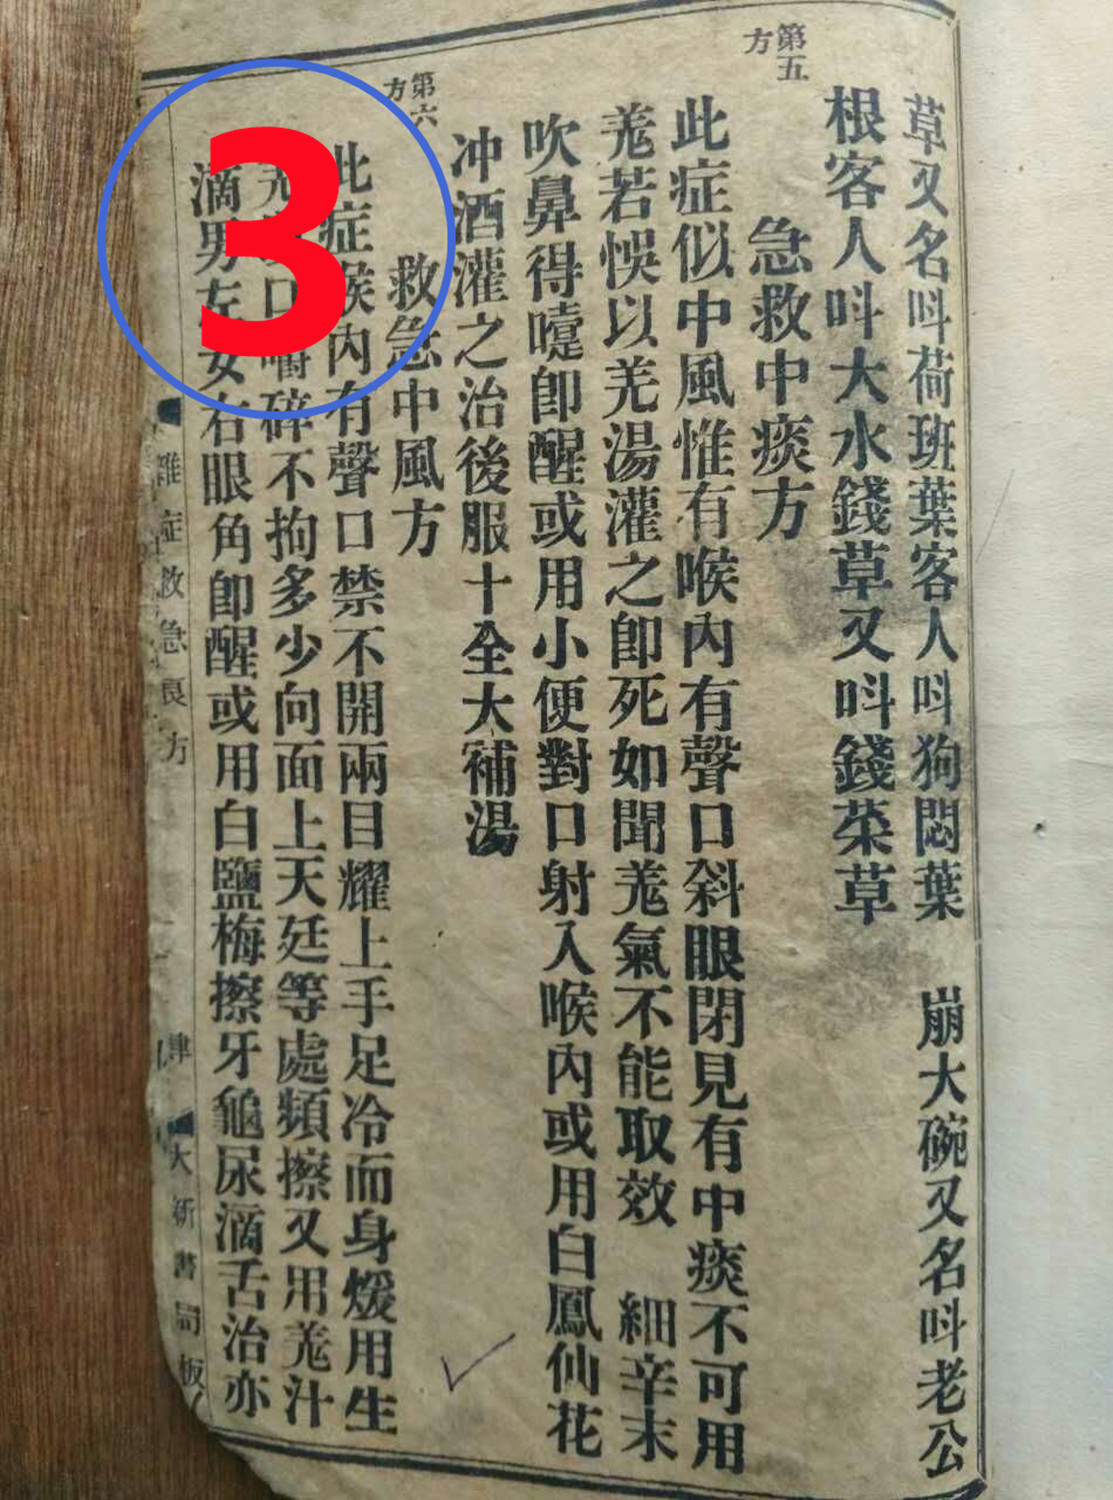 草又名呌荷班葉客人呌狗悶葉 崩大碗又名呌老公
根客人呌大水錢草又呌錢菜草
第五方
急救中痰方
此症似中風惟有喉內有聲口斜眼閉見有中痰不可用
羗若悞以羌湯灌之卽死如聞羗氣不能取效 細辛末
吹鼻得嚏卽醒或用小便對口射入喉內或用白鳳仙花
冲酒灌之治後服十全大補湯
第六方
救急中風方
此症候內有聲口禁不開兩目耀上手足冷而身煖用生
口嚼碎不拘多少向面上天廷等處頻擦又用羗汁
滴男左女右眼角卽醒或用白鹽梅擦牙龜尿滴舌治亦
雜症救急良方
肆
大新書局板
3